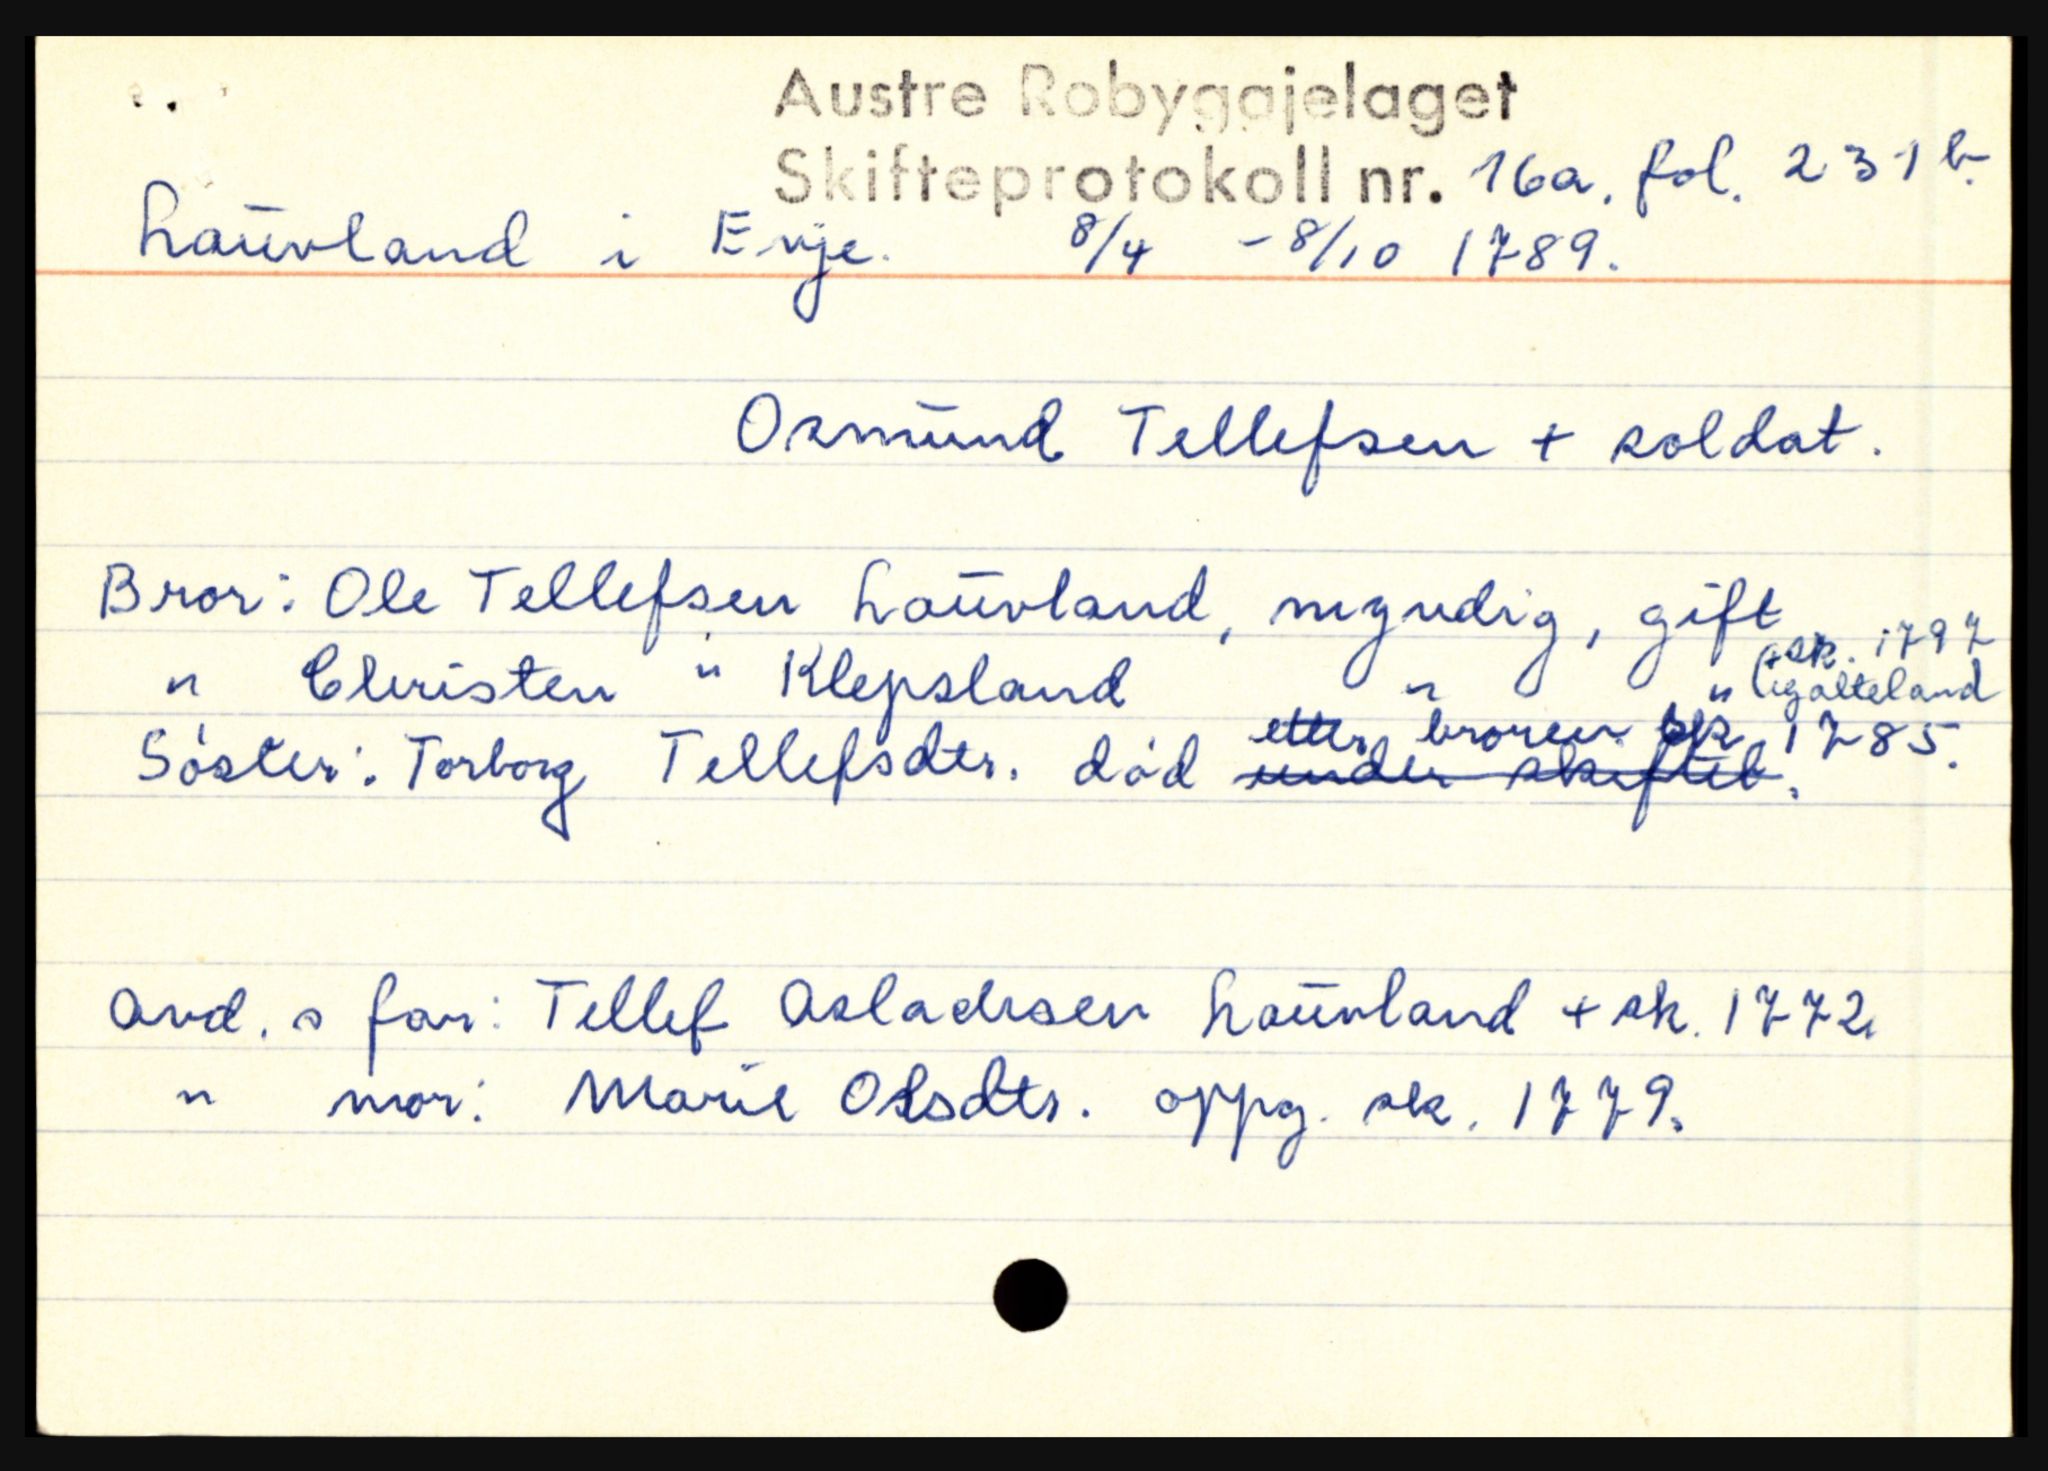 Austre Robyggjelaget
Skifteprotokoll nr. 16a. fol. 231 b.
Lauvland i Evje. 8/4 - 8/10 1789.
Osmund Tellefsen + soldat.
Bror: Ole Tellefsen Lauvland, myndig, gift
(+ sk. 1797
" Christen " Klepsland " " Galteland
etter broren sk 1785.
Søster: Torborg Tellefsdtr. død under skiftet.
Avd. s far: Tellef Aslacksen Lauvland + sk. 1772
" mor: Marie Olsdtr. oppg. sk. 1779.